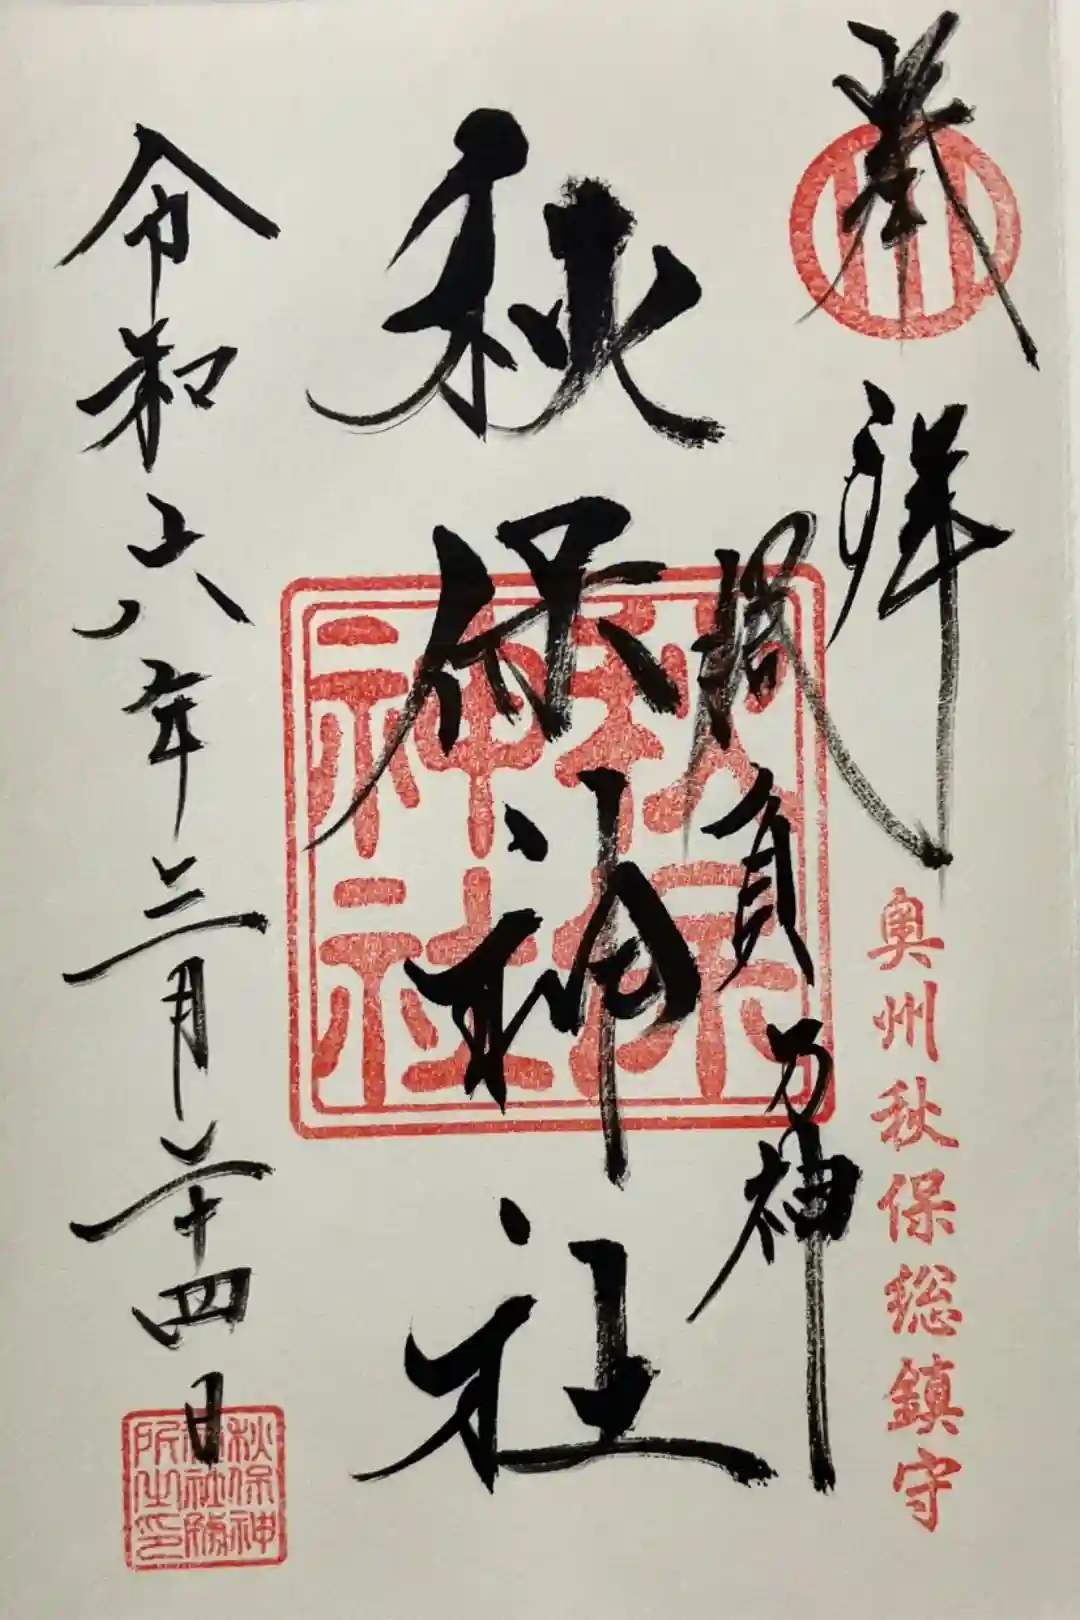 奉拝
奥州秋保総鎮守
勝負乃神
秋保神社
秋保
神社
令和六年三月二十四日
秋保神
社社務
所之印